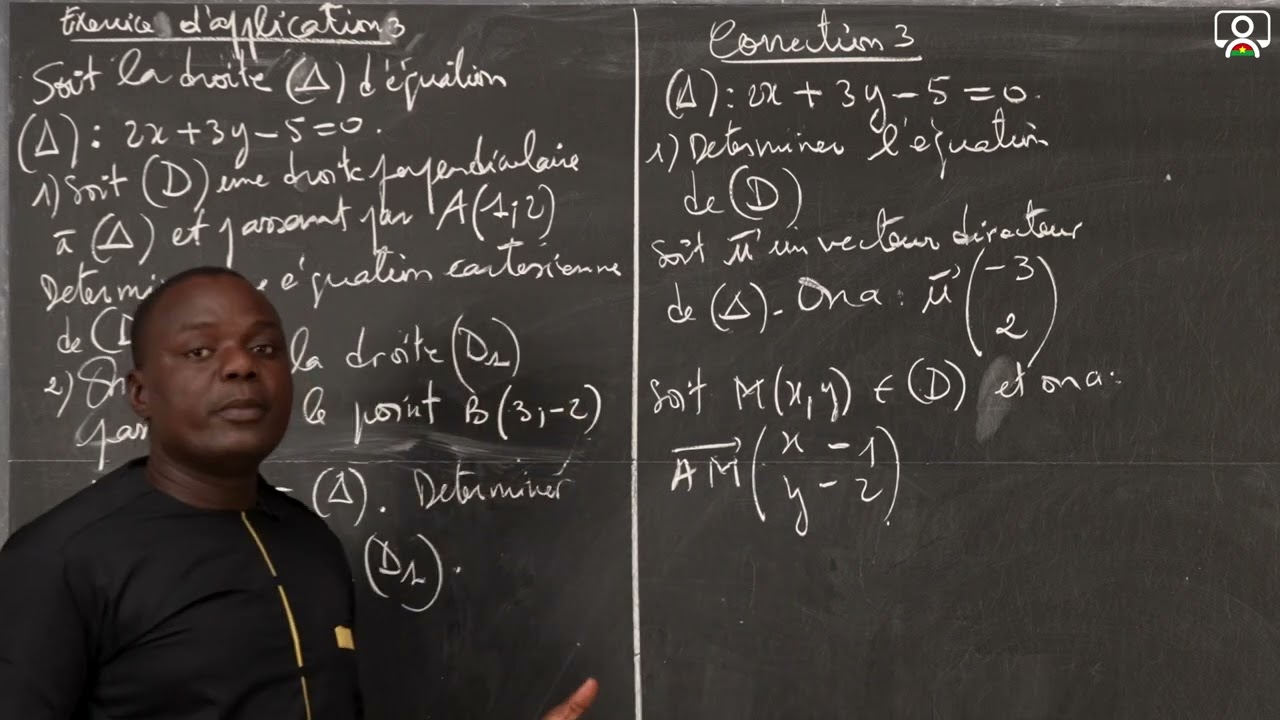 Exercice d'application 3
Soit la droite (Δ) d'équation
(Δ): 2x+3y-5=0.
1) Soit (D) une droite perpendiculaire
à (Δ) et passant par A(1;2)
Determi e équation cartésienne
de (D
2) la droite (D1)
pa le point B(3;-2)
(Δ). Determiner
(D1).
Correction 3
(Δ): 2x + 3y - 5 = 0.
1) Determiner l'équation
de (D)
Soit u⃗ un vecteur directeur
de (Δ). On a: u⃗ (-3
2)
Soit M(x,y) ∈ (D) et on a:
AM⃗ (x - 1
y - 2).